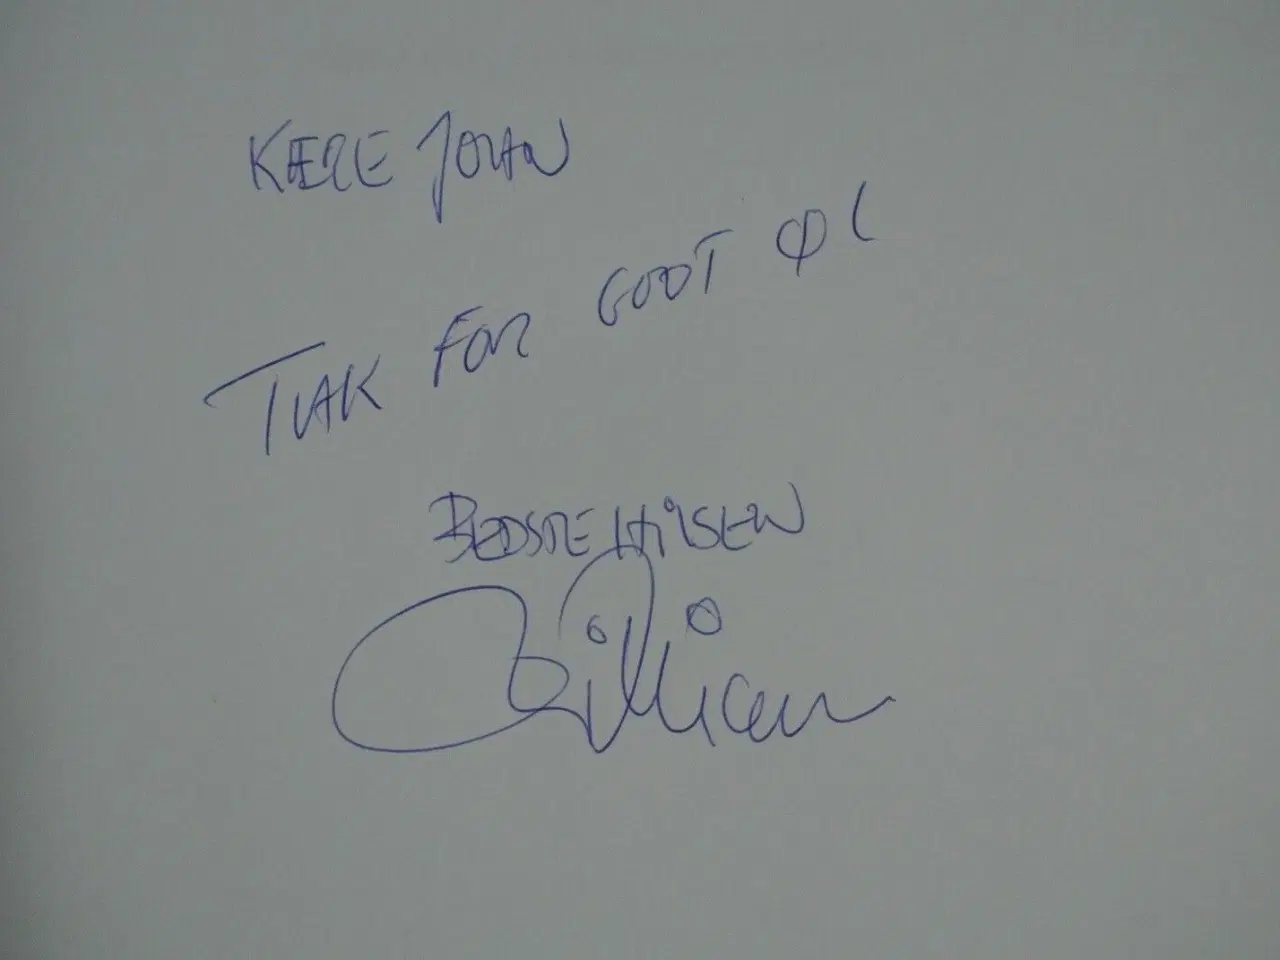 KÆRE JOHAN
TAK FOR GODT ØL
BEDSTE HILSEN